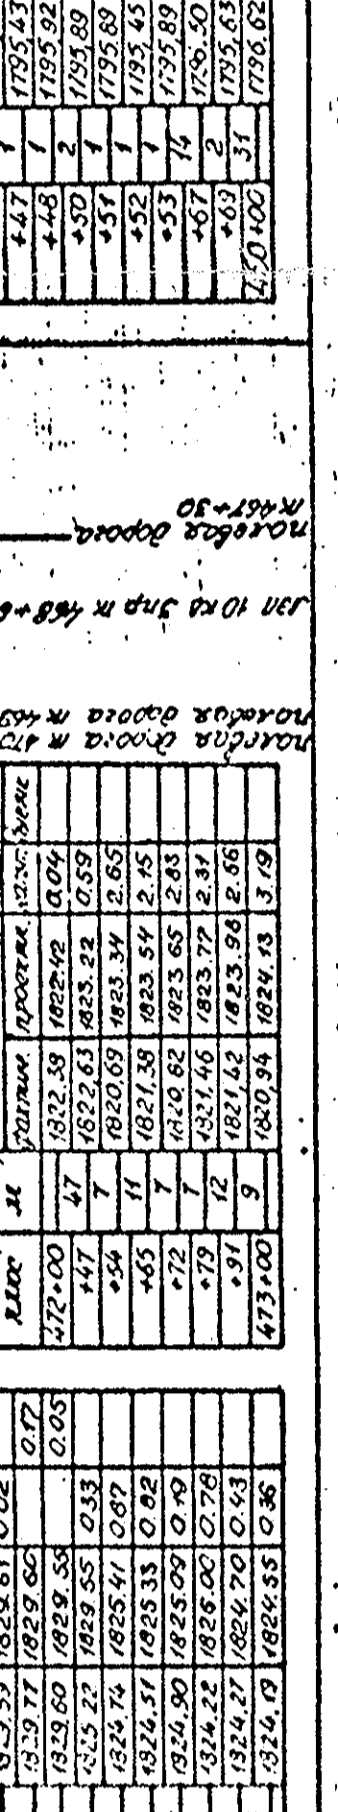 +47 1 1795,43
+48 1 1795,92
+50 2 1795,89
+51 1 1795.89
+52 1 1795,45
+53 1 1795,89
+67 14 1796.50
+69 2 1795,63
450+00 31 1796,62
полевая дорога
пк 467+30
лэп 10 кв 3пр пк 468+6
полевая дорога пк 473
полевая дорога пк 469
м проектн.
472+00 1822,38 1822.42 0.04
+47 47 1822,63 1823.22 0.59
+54 7 1820,69 1823.34 2.65
+65 11 1821,38 1823.54 2.15
+72 7 1820,82 1823 65 2.83
+79 7 1821,46 1823.77 2.31
+91 12 1821,42 1823.98 2.56
473+00 9 1820,94 1824.13 3.19
1829.77 1829.60 0.17
1829,60 1829.55 0.05
1825 22 1829.55 0.33
1824.74 1825.41 0.67
1824.51 1825 33 0.82
1824.90 1825.09 0.19
1824.22 1825.00 0.78
1824.27 1824.70 0.43
1824.19 1824.55 0.36